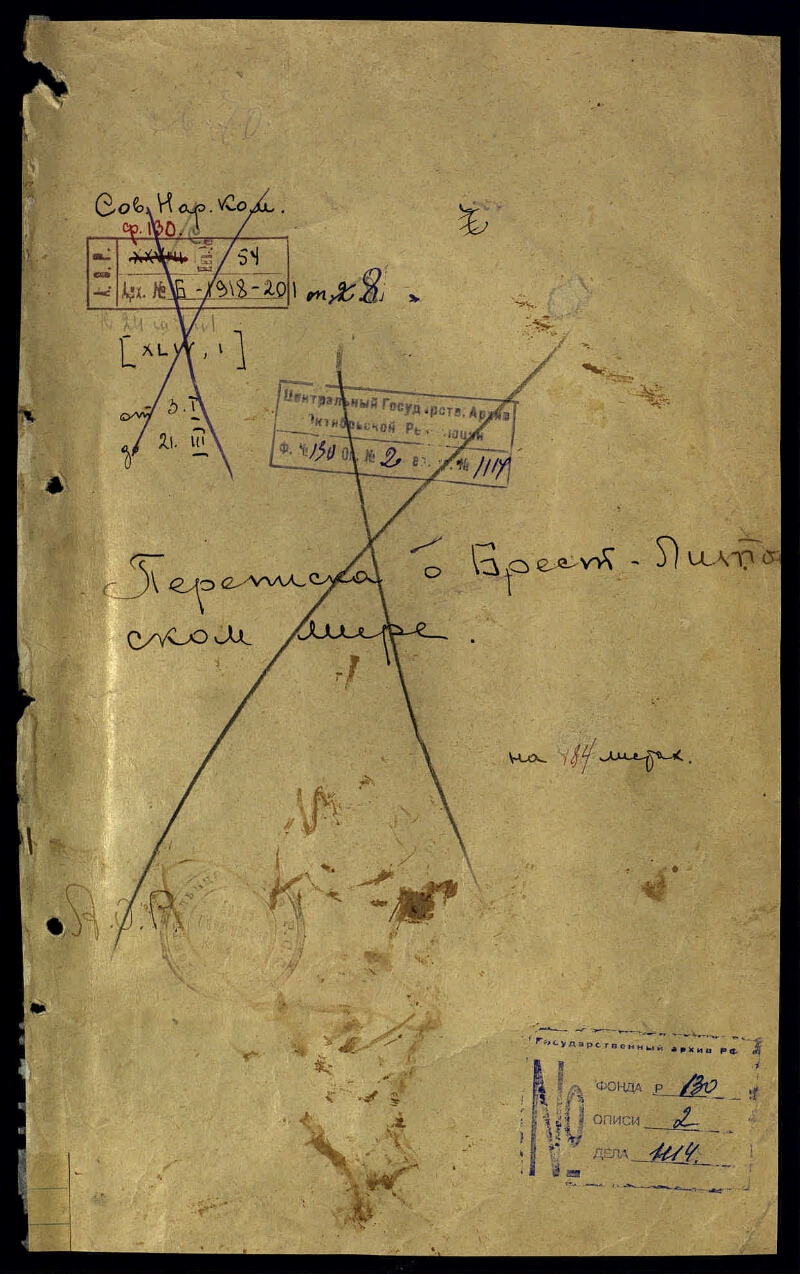 Сов. Нар. Ком.
ф. 130.
54
Арх. № Б - 1918-201
[XLIV, 1]
от 3. I
до 21. III
Центральный Государств. Архив
Октябрьской Революции
Ф. № 130 Оп. № 2 ед. хр. № 1114
Переписка о Брест-Лито
ском мире.
на 184 листах.
А.О.Р.
Государственный архив РФ
№
ФОНДА Р 130
ОПИСИ 2
ДЕЛА 1114.